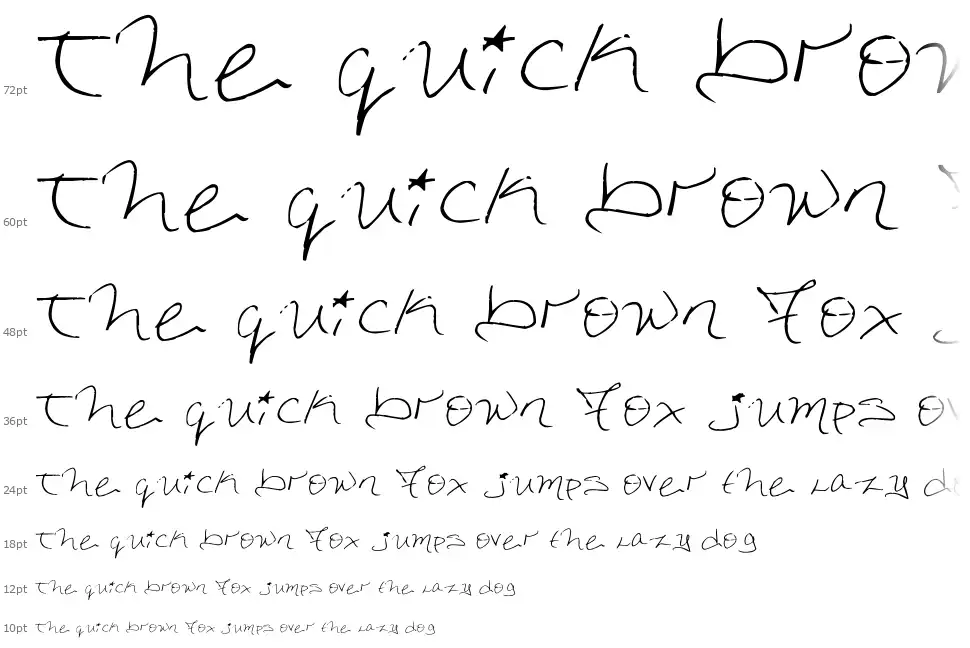 72pt The quick brow
60pt The quick brown
48pt The quick brown fox
36pt The quick brown fox jumps ov
24pt The quick brown fox jumps over the lazy d
18pt The quick brown fox jumps over the lazy dog
12pt The quick brown fox jumps over the lazy dog
10pt The quick brown fox jumps over the lazy dog